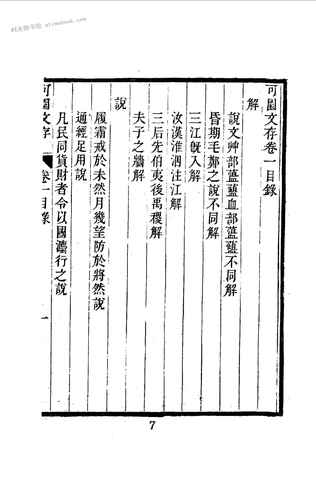 可園文存卷一目錄
解
說文艸部藍藍血部䘓蘫不同解
昏期毛鄭之說不同解
三江旣入解
汝漢淮泗注江解
三后先伯夷後禹稷解
夫子之牆解
說
履霜戒於未然月幾望防於將然說
通經足用說
凡民同貨財者令以國灋行之說
可園文存
卷一目錄
一
7